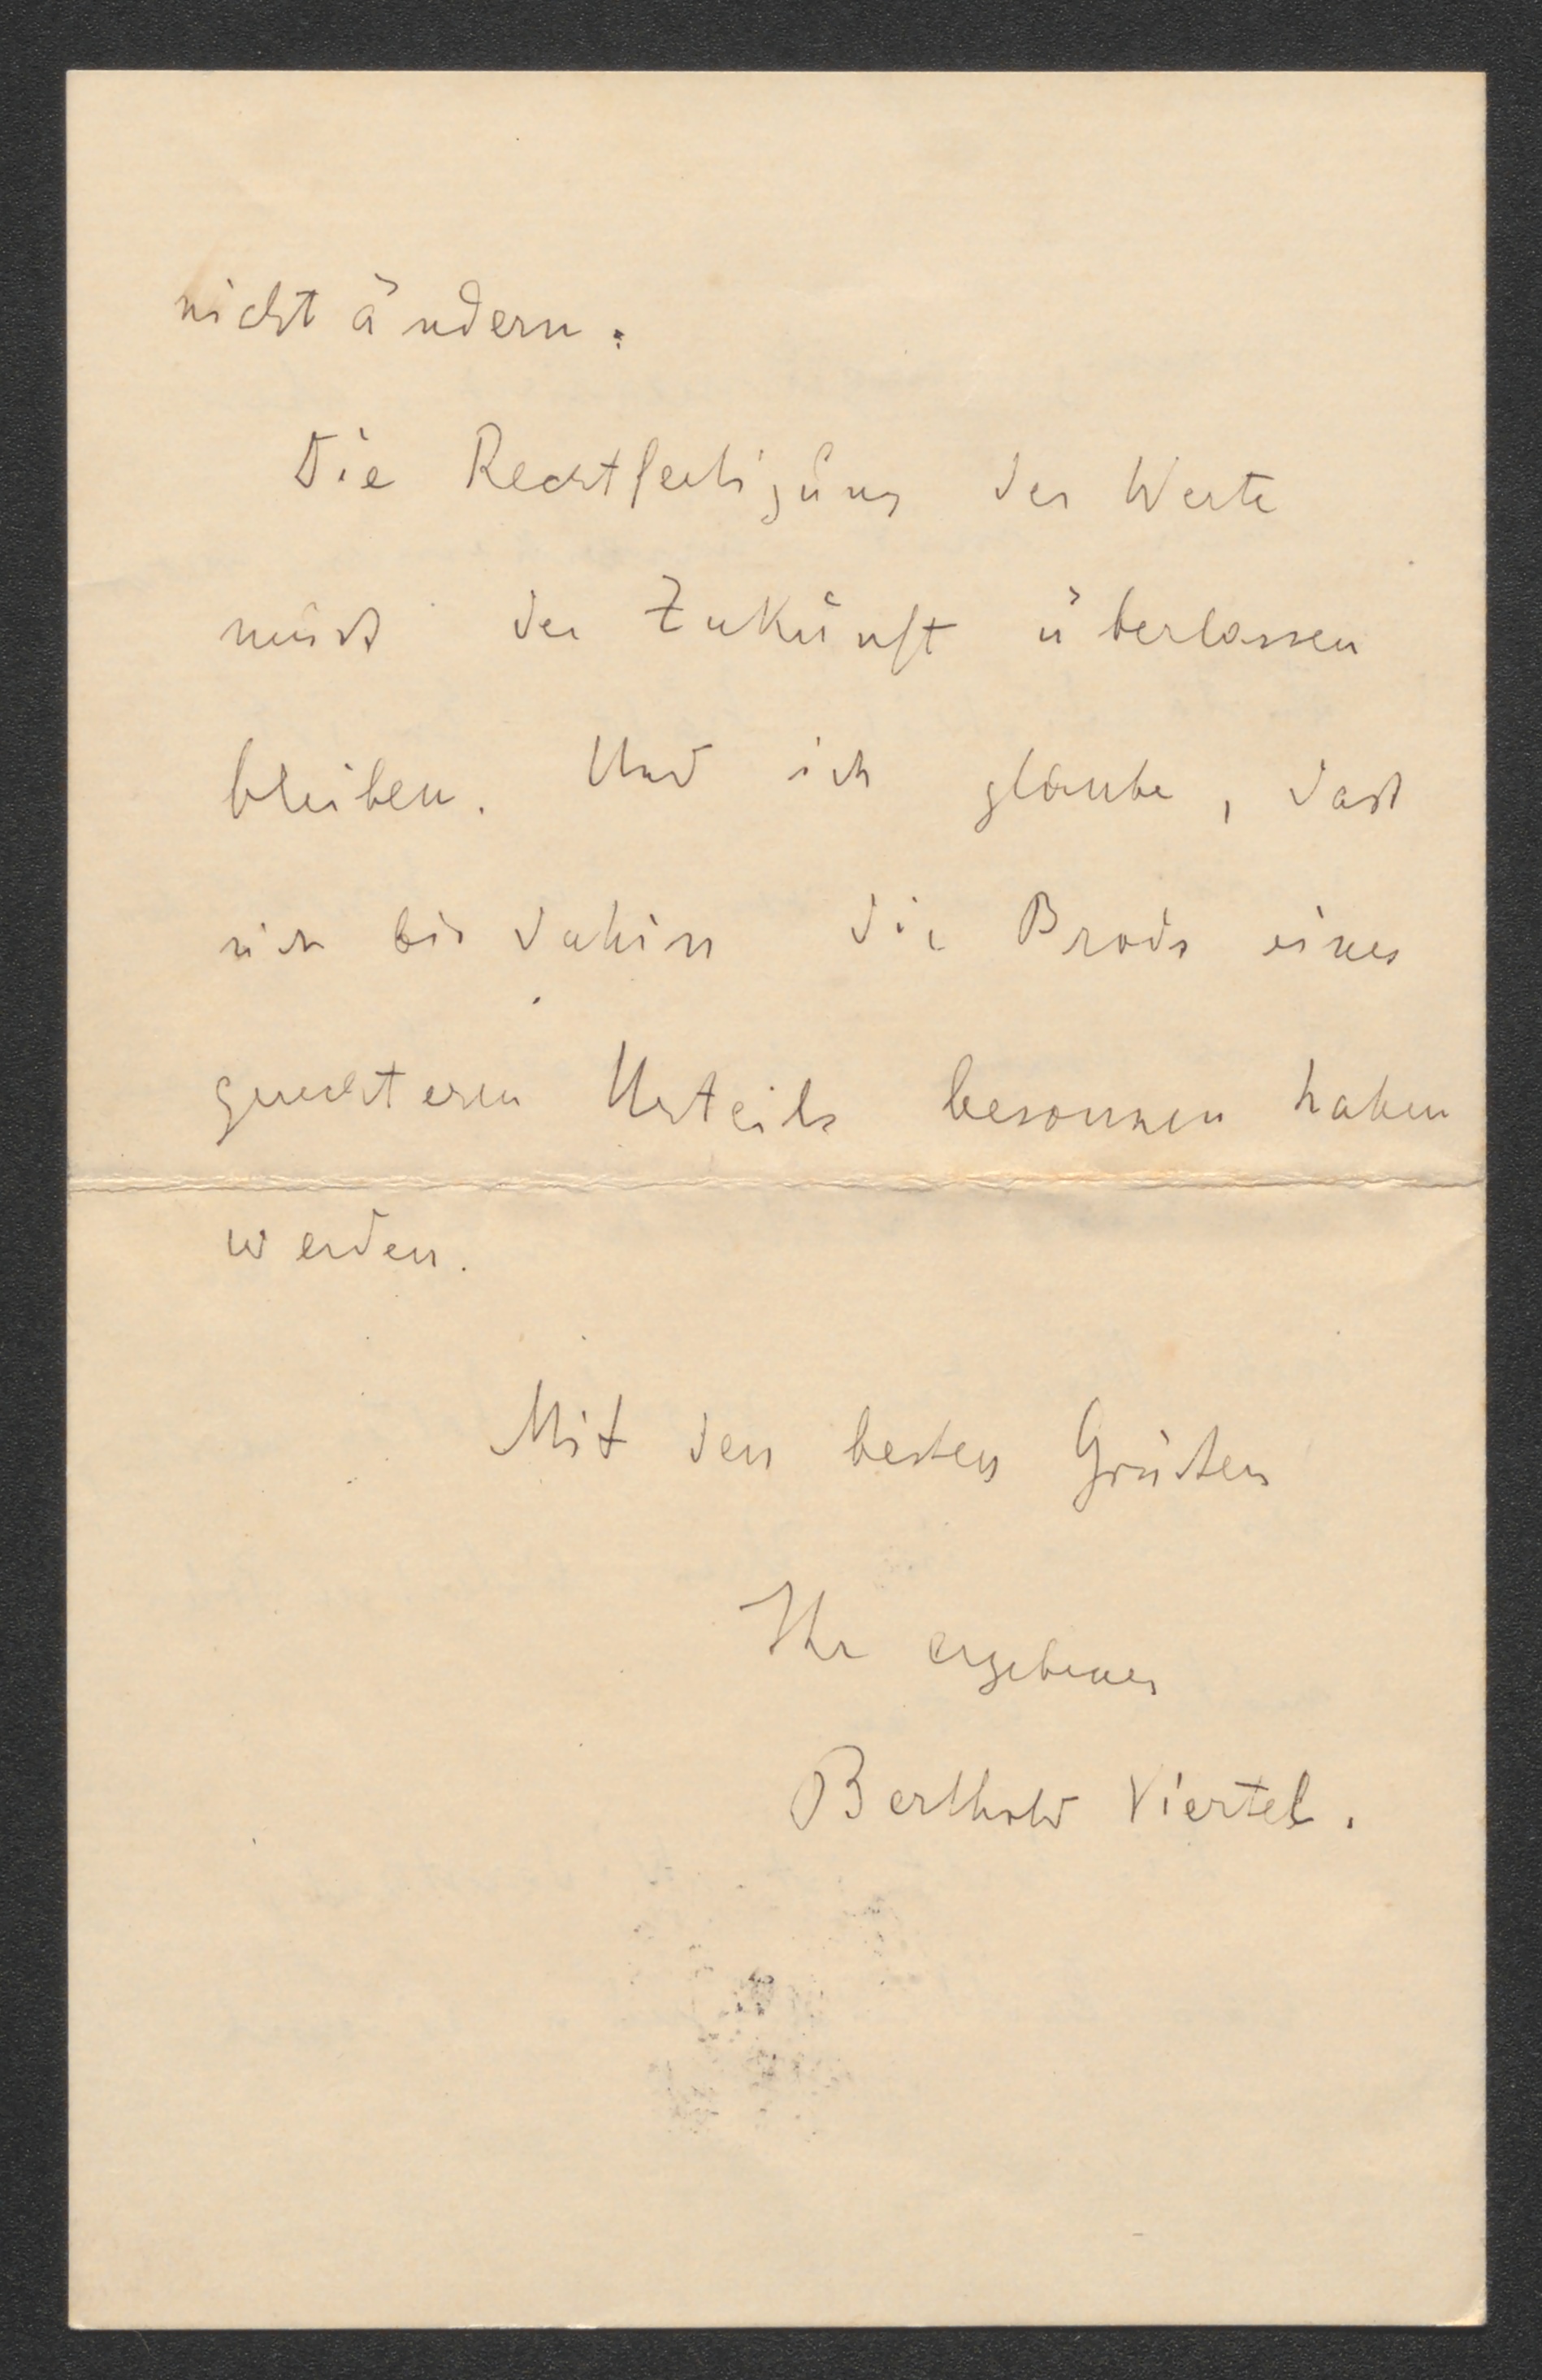 nicht ändern.
Die Rechtfertigung der Werte
muß der Zukunft überlassen
bleiben. Und ich glaube, daß
sich bis dahin die Brods eines
gerechteren Urteils besonnen haben
werden.
Mit den besten Grüßen
Ihr ergebener
Berthold Viertel.